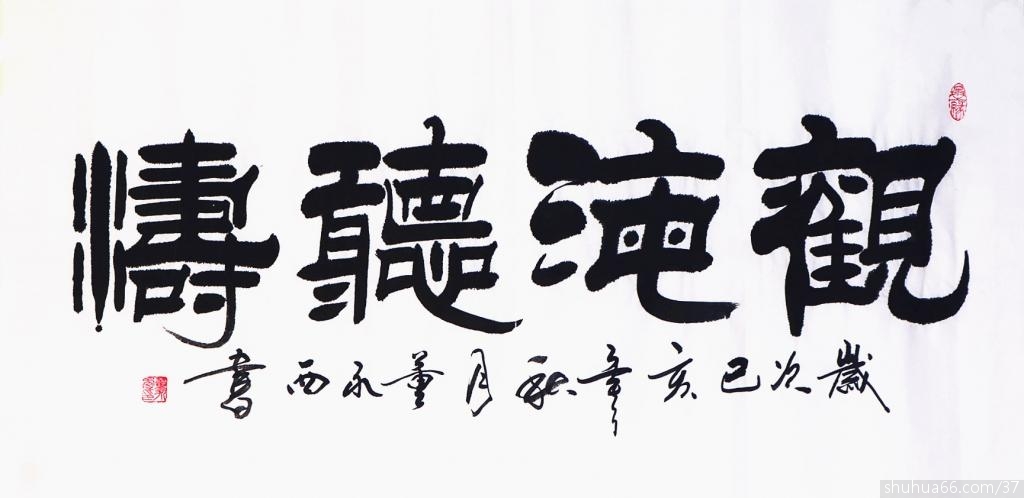 觀海聽濤
歲次己亥年秋月董永西書
shuhua66.com/37